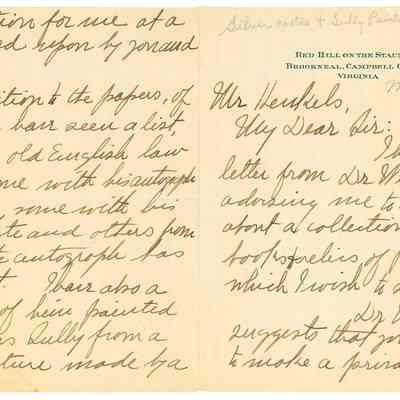 tion for me at a
upon by you and
ition to the papers, of
have seen a list,
old English law
me with his autograph
some with his
and others from
autograph has
I have also a
of him painted
Sully from a
ture made by a
Silver notes & Sully Paint
RED HILL ON THE STAU
BROOKNEAL, CAMPBELL C
VIRGINIA
Mr Henkels,
My Dear Sir:
I h
letter from Dr W
advising me to
about a collection
books & relics of P
which I wish to s
Dr W
suggests that yo
to make a priva